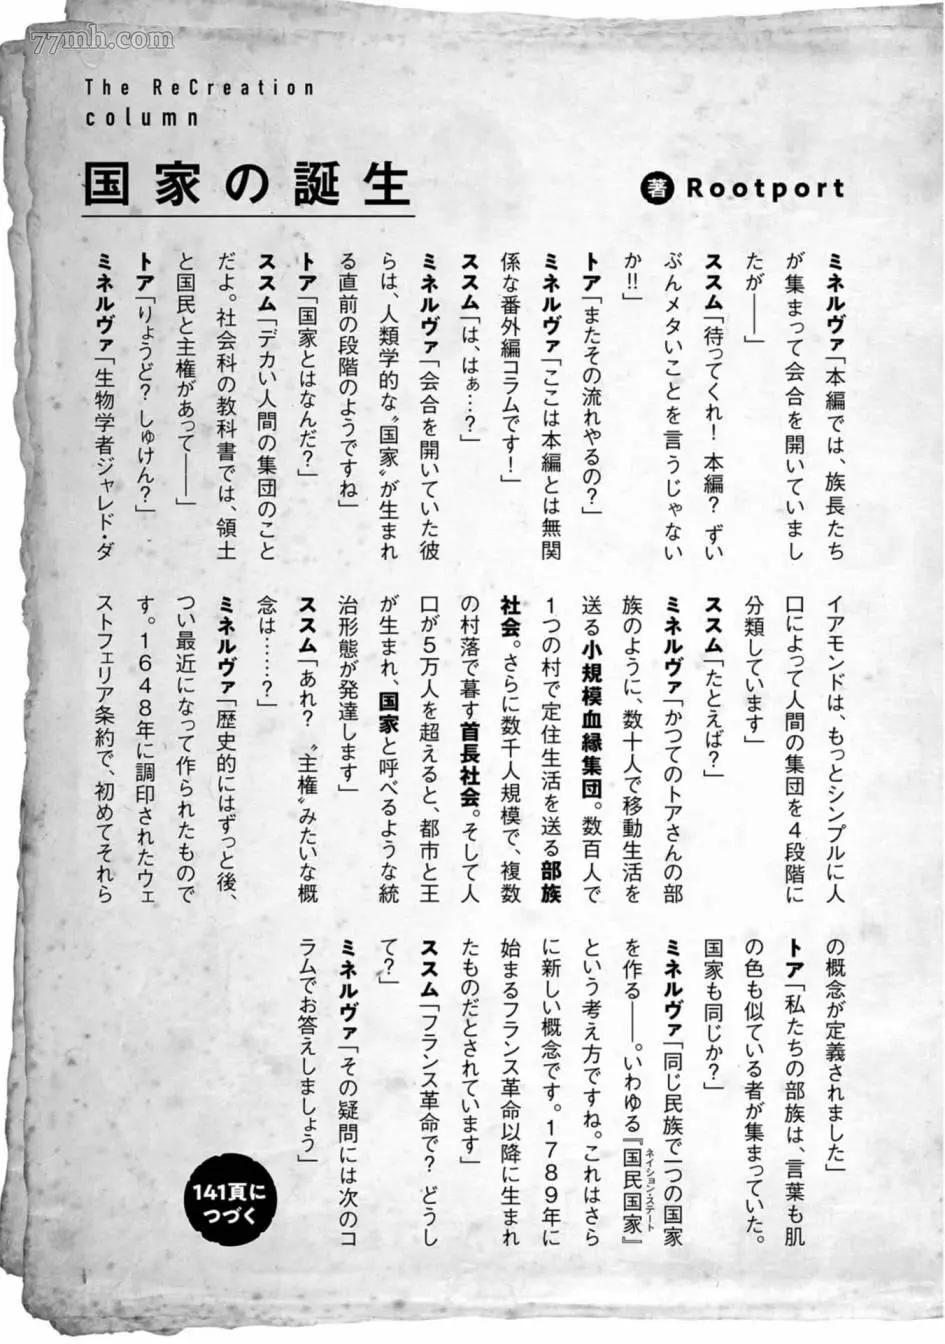 77mh.com
The ReCreation
column
国家の誕生
著 Rootport
ミネルヴァ「本編では、族長たち
が集まって会合を開いていまし
たが――」
ススム「待ってくれ！ 本編？ ずい
ぶんメタいことを言うじゃない
か!!」
トア「またその流れやるの？」
ミネルヴァ「ここは本編とは無関
係な番外編コラムです！」
ススム「は、はぁ…？」
ミネルヴァ「会合を開いていた彼
らは、人類学的な〝国家〟が生まれ
る直前の段階のようですね」
トア「国家とはなんだ？」
ススム「デカい人間の集団のこと
だよ。社会科の教科書では、領土
と国民と主権があって――」
トア「りょうど？ しゅけん？」
ミネルヴァ「生物学者ジャレド・ダ
イアモンドは、もっとシンプルに人
口によって人間の集団を4段階に
分類しています」
ススム「たとえば？」
ミネルヴァ「かつてのトアさんの部
族のように、数十人で移動生活を
送る小規模血縁集団。数百人で
1つの村で定住生活を送る部族
社会。さらに数千人規模で、複数
の村落で暮す首長社会。そして人
口が5万人を超えると、都市と王
が生まれ、国家と呼べるような統
治形態が発達します」
ススム「あれ？ 〝主権〟みたいな概
念は……？」
ミネルヴァ「歴史的にはずっと後、
つい最近になって作られたもので
す。1648年に調印されたウェ
ストフェリア条約で、初めてそれら
の概念が定義されました」
トア「私たちの部族は、言葉も肌
の色も似ている者が集まっていた。
国家も同じか？」
ミネルヴァ「同じ民族で一つの国家
を作る――。いわゆる『国民国家』
ネイション・ステート
という考え方ですね。これはさら
に新しい概念です。1789年に
始まるフランス革命以降に生まれ
たものだとされています」
ススム「フランス革命で？ どうし
て？」
ミネルヴァ「その疑問には次のコ
ラムでお答えしましょう」
141頁に
つづく